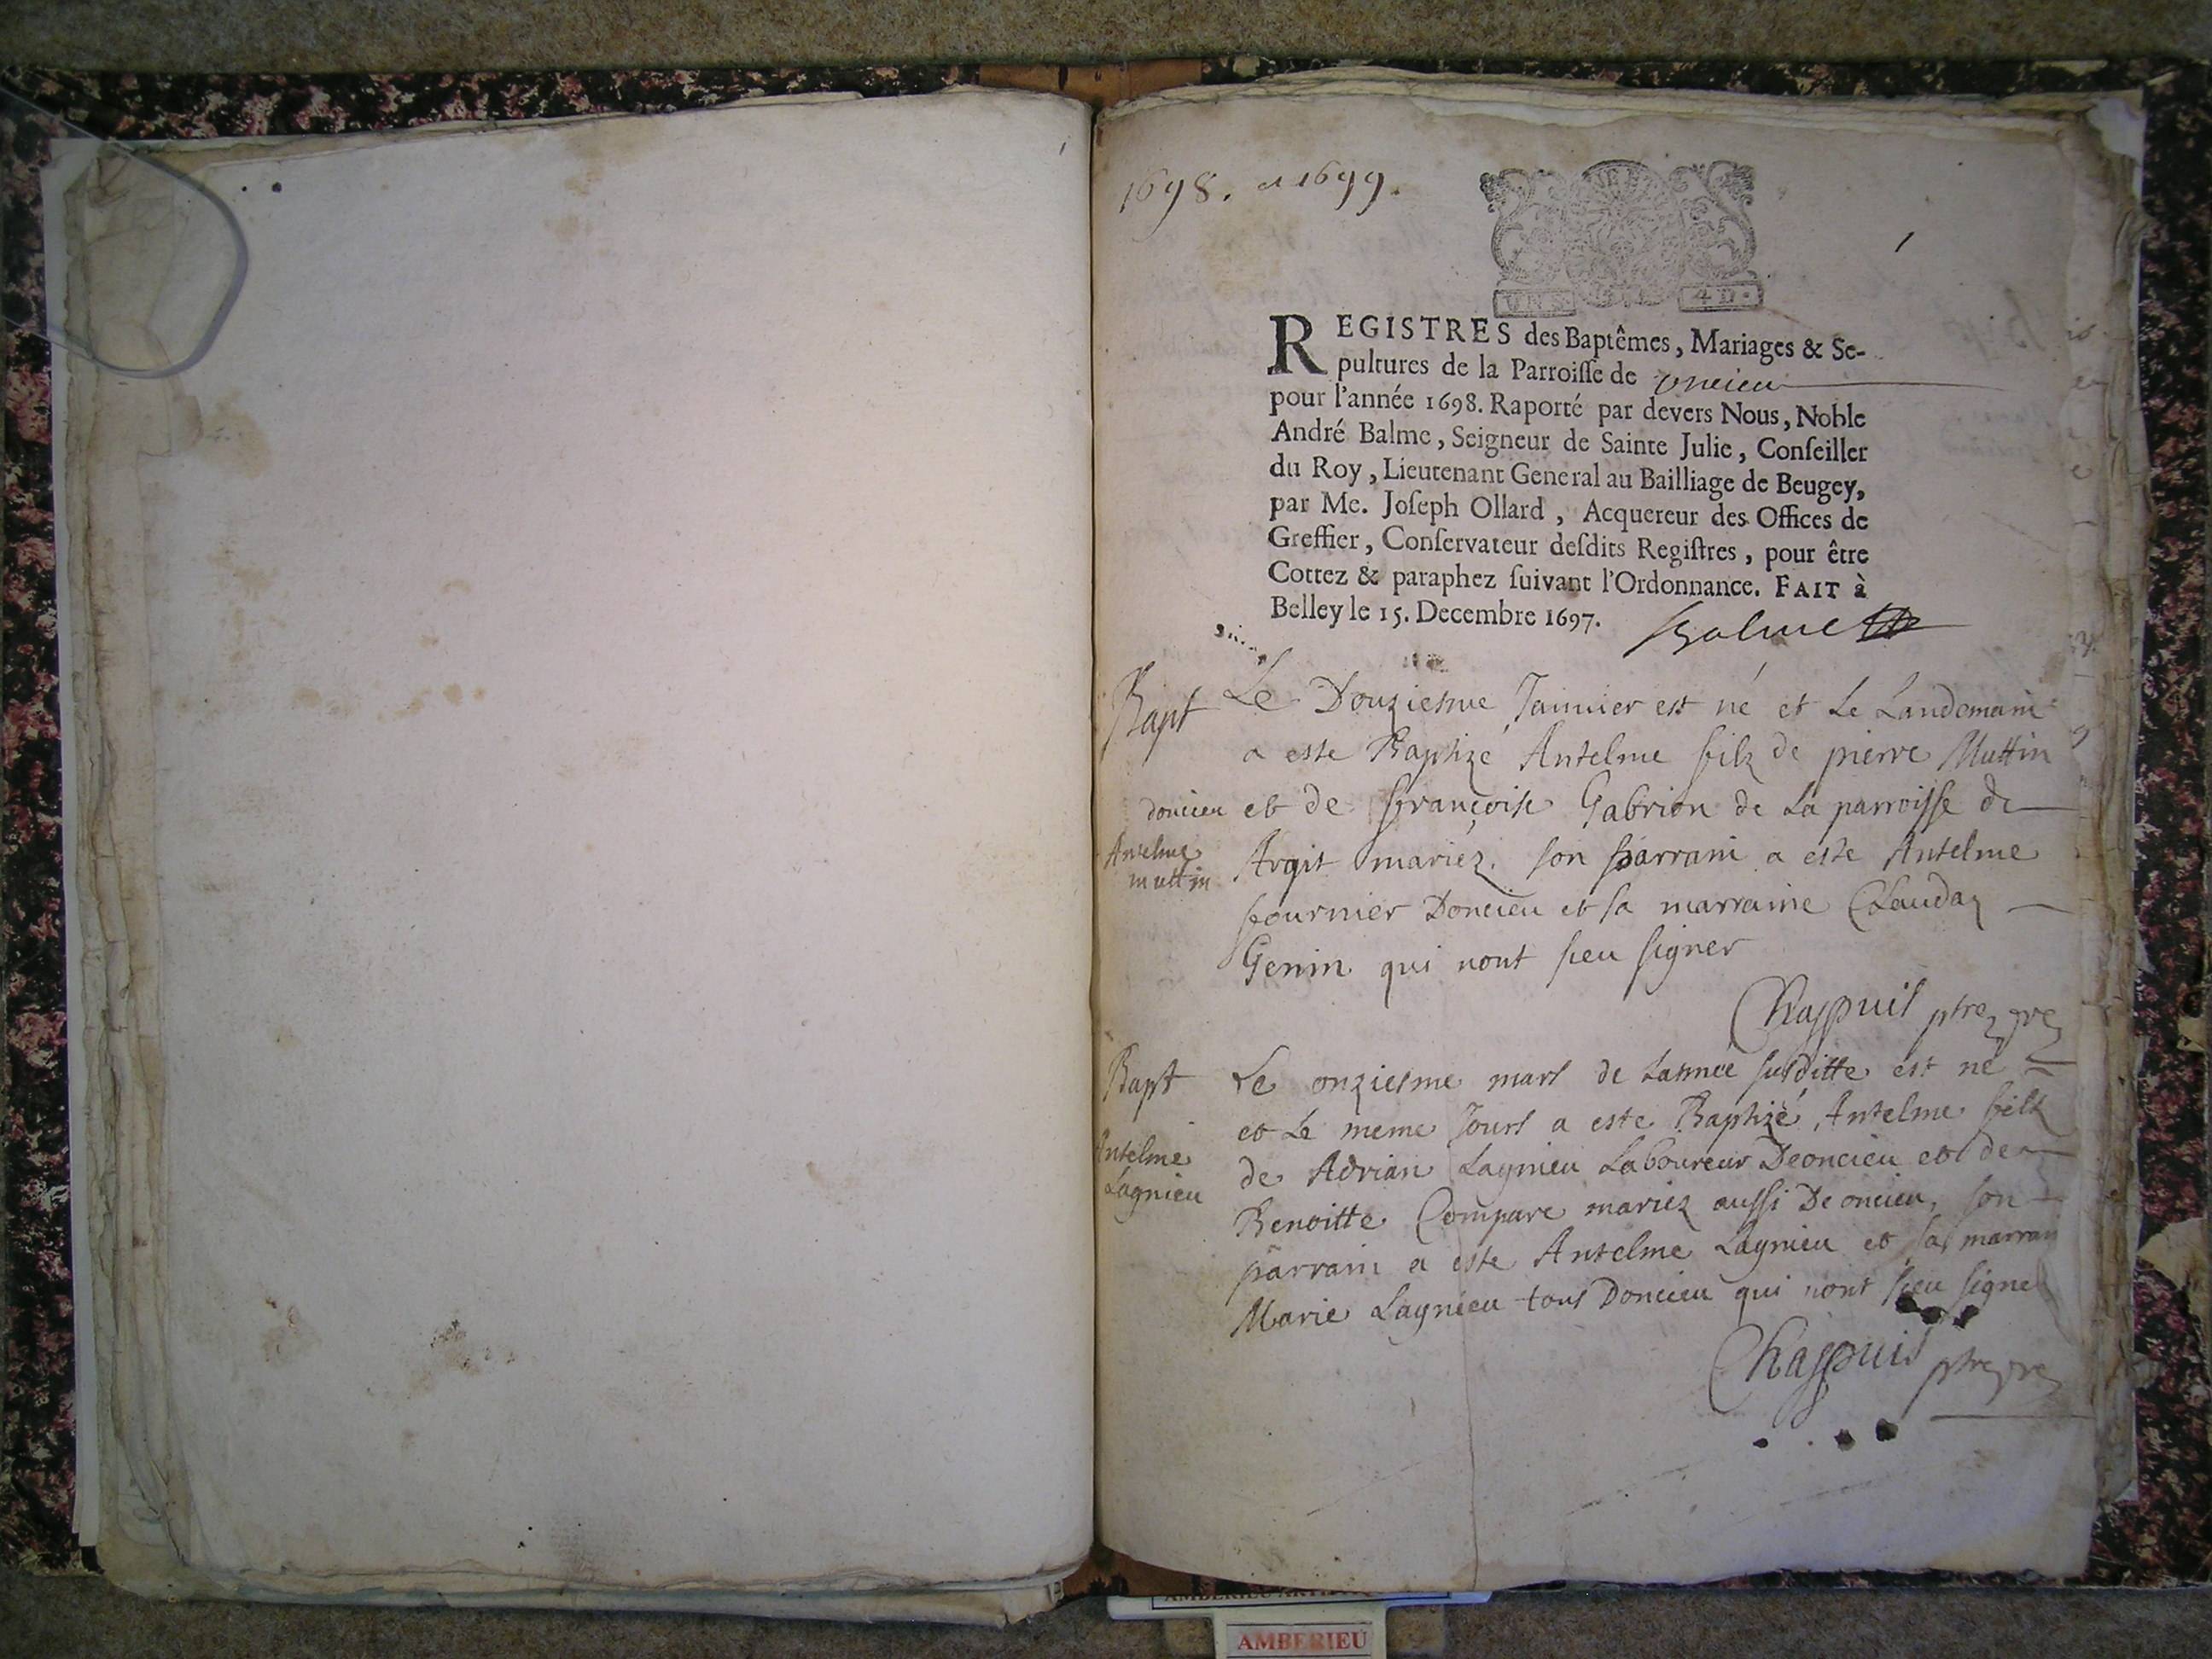 1698. et 1699.
1
4 D.
REGISTRES des Baptêmes, Mariages & Se-
pultures de la Parroisse de oncieu
pour l'année 1698. Raporté par devers Nous, Noble
André Balme, Seigneur de Sainte Julie, Conseiller
du Roy, Lieutenant General au Bailliage de Beugey,
par Me. Joseph Ollard, Acquereur des Offices de
Greffier, Conservateur desdits Registres, pour être
Cottez & paraphez suivant l'Ordonnance. FAIT à
Belley le 15. Decembre 1697.
Balme
Bapt
doncieu
Antelme
muttin
Le Douziesme Januier est né et Le Landemain
a este Baptizé Antelme filz de pierre Muttin
et de françoise Gabrion de La parroisse de
Argit mariéz. son parrain a este Antelme
fournier Doncieu et sa marraine Clauda
Genin qui nont sceu signer
Chappuis ptre
Bapt
Antelme
Lagnieu
Le onziesme mars de Lannée susditte est né
et Le meme Jours a este Baptizé Antelme filz
de Adrian Lagnieu Laboureur Deoncieu et de
Benoitte Compare mariez aussi De oncieu, son
parrain a este Antelme Lagnieu et sa marrain
Marie Lagnieu tous Doncieu qui nont sceu signer
Chappuis ptre
AMBERIEU